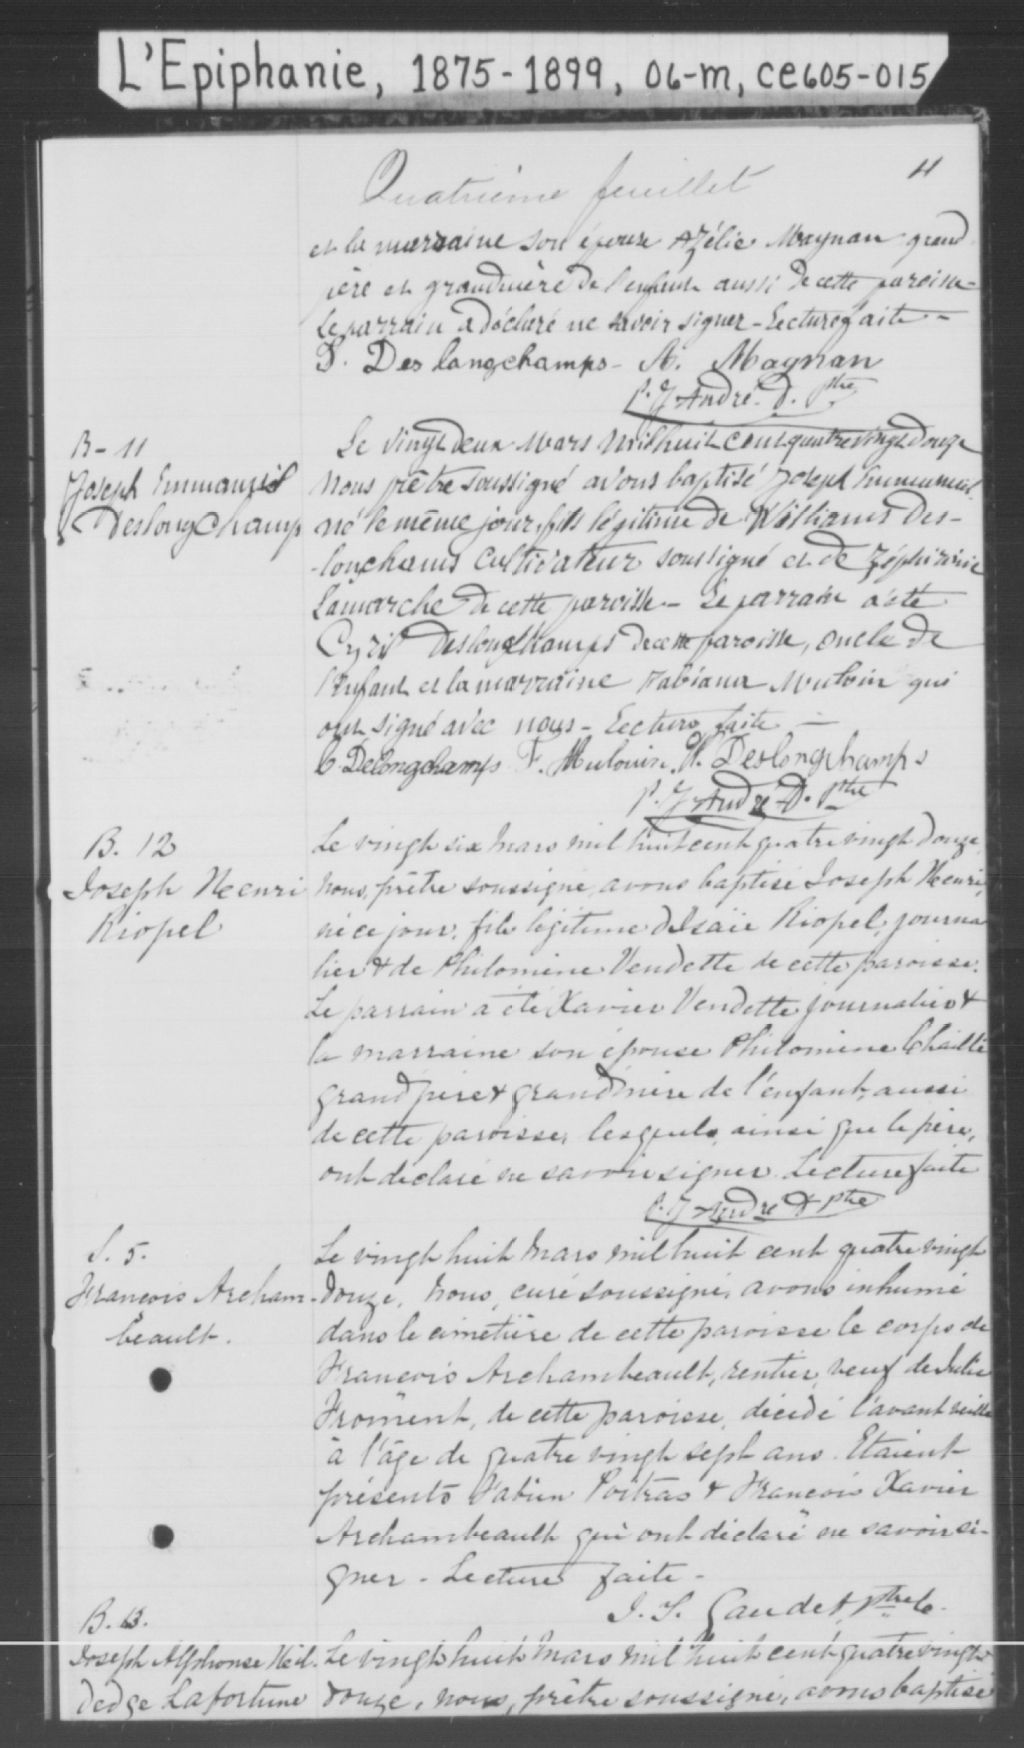 L'Epiphanie, 1875-1899, 06-m, CE605-015
Quatrième feuillet
4
et la marraine son épouse Azélie Magnan grand
père et grandmère de l'enfant aussi de cette paroisse-
Le parrain a déclaré ne savoir signer - Lecture faite -
D. Deslongchamps - A. Magnan
P. J. André. D. Ptre
B - 11
Joseph Emmanuel
Deslongchamp
Le vingt deux Mars mil huit cent quatre vingt douze
Nous prêtre soussigné avons baptisé Joseph Emmanuel
né le même jour, fils légitime de Williams Des-
-lonchams Cultivateur soussigné et de Zéphirinie
Lamarche de cette paroisse - Le parrain a été
Cyril Deslongchamps de cette paroisse, oncle de
l'enfant et la marraine Fabiana Mulouin qui
ont signé avec nous - Lecture faite -
C. Delongchamps F. Mulouin. W. Deslongchamps
P. J. André - D. Ptre
B. 12
Joseph Heenri
Riopel
Le vingt six Mars mil huit cent quatre vingt douze,
nous, prêtre soussigné, avons baptisé Joseph Heenri,
né ce jour, fils légitime d'Isaïe Riopel, journa
lier & de Philomène Vendette de cette paroisse.
Le parrain a été Xavier Vendette journalier &
la marraine son épouse Philomène Chaillé
grand père & grand'mère de l'enfant, aussi
de cette paroisse, lesquels, ainsi que le père,
ont déclaré ne savoir signer. Lecture faite
P. J. André D Ptre
S. 5.
Francois Archam-
beault.
Le vingt huit Mars mil huit cent quatre vingt
douze, Nous, curé soussigné, avons inhumé
dans le cimetière de cette paroisse le corps de
Francois Archambeault, rentier, veuf de Julie
Froment, de cette paroisse, décédé l'avant veille
à l'âge de quatre vingt sept ans. Etaient
présents Fabien Poitras & Francois Xavier
Archambeault qui ont déclaré ne savoir si-
gner - Lecture faite -
J. S. Gaudet, Ptre C.
B. 13.
Joseph Alphonse
dedge Lafortune
Le vingt huit Mars mil huit cent quatre vingt
douze, nous, prêtre soussigné, avons baptisé